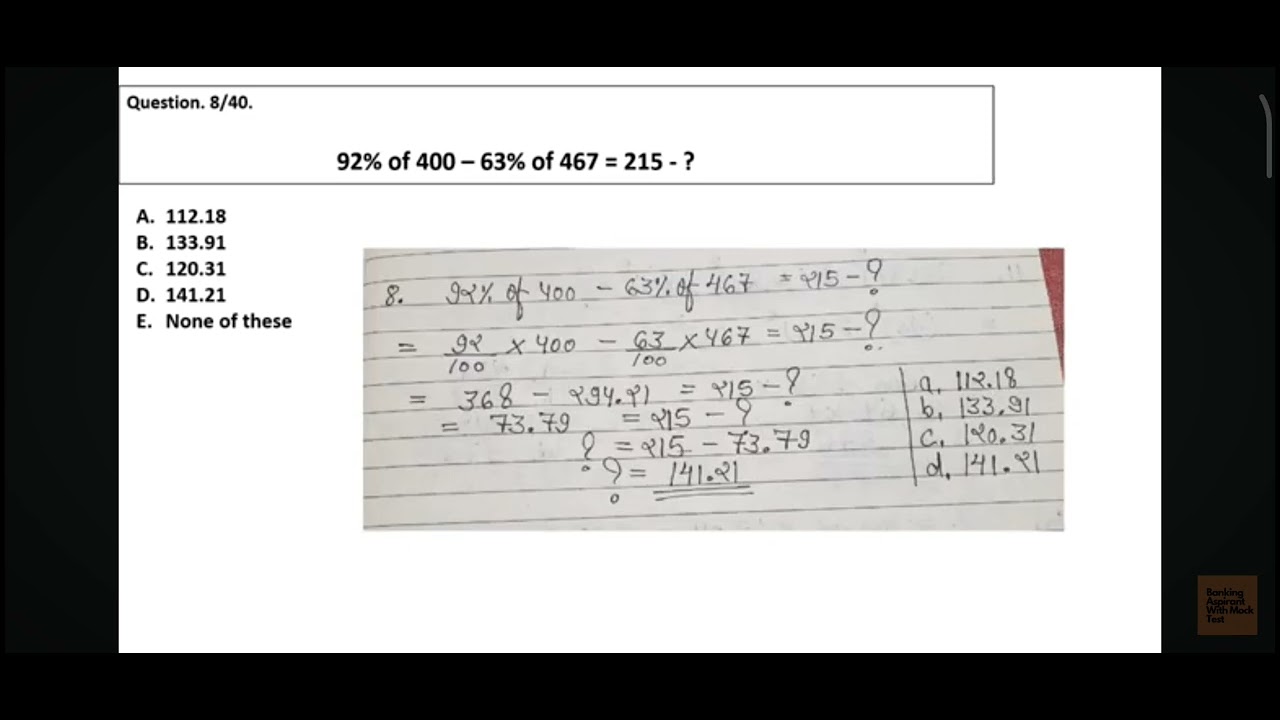 Question. 8/40.
92% of 400 – 63% of 467 = 215 - ?
A. 112.18
B. 133.91
C. 120.31
D. 141.21
E. None of these
8. 92% of 400 - 63% of 467 = 215 - ?
= 92/100 × 400 - 63/100 × 467 = 215 - ?
= 368 - 294.21 = 215 - ?
= 73.79 = 215 - ?
? = 215 - 73.79
? = 141.21
a. 112.18
b. 133.91
c. 120.31
d. 141.21
Banking
Aspirant
With Mock
Test